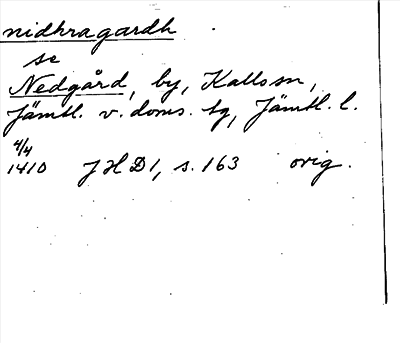 nidhragardh
se
Nedgård, by, Kalls sn,
Jämtl. v. doms. tg, Jämtl. l.
4/4
1410 JHD1, s. 163 orig.